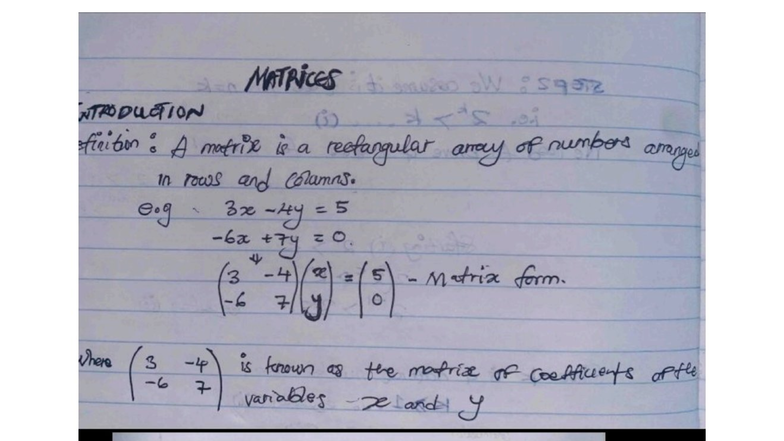 MATRICES
NTRODUCTION
efinition : A matrix is a rectangular array of numbers arranged
in rows and columns.
e.g 3x - 4y = 5
-6x + 7y = 0.
(3 -4) (x) = (5) - Matrix form.
(-6 7) (y) (0)
Where (3 -4) is known as the matrix of coefficients of the
(-6 7) variables x and y